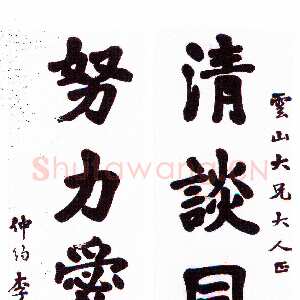 雲山大兄大人正
清談同
努力愛
仲約李
Shufawang.CN